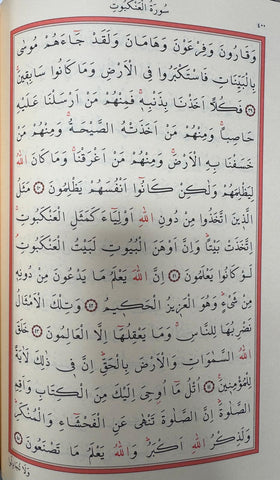 سُورَةُ الْعَنْكَبُوتِ
٤٠٠
وَقَارُونَ وَفِرْعَوْنَ وَهَامَانَ وَلَقَدْ جَٓاءَهُمْ مُوسٰى
بِالْبَيِّنَاتِ فَاسْتَكْبَرُوا فِي الْاَرْضِ وَمَا كَانُوا سَابِق۪ينَ ﴿٣٩﴾
فَكُلًّا اَخَذْنَا بِذَنْبِه۪ فَمِنْهُمْ مَنْ اَرْسَلْنَا عَلَيْهِ
حَاصِبًا وَمِنْهُمْ مَنْ اَخَذَتْهُ الصَّيْحَةُ وَمِنْهُمْ مَنْ
خَسَفْنَا بِهِ الْاَرْضَ وَمِنْهُمْ مَنْ اَغْرَقْنَا وَمَا كَانَ اللّٰهُ
لِيَظْلِمَهُمْ وَلٰكِنْ كَانُٓوا اَنْفُسَهُمْ يَظْلِمُونَ ﴿٤٠﴾ مَثَلُ
الَّذ۪ينَ اتَّخَذُوا مِنْ دُونِ اللّٰهِ اَوْلِيَٓاءَ كَمَثَلِ الْعَنْكَبُوتِ
اِتَّخَذَتْ بَيْتًا وَاِنَّ اَوْهَنَ الْبُيُوتِ لَبَيْتُ الْعَنْكَبُوتِ
لَوْ كَانُوا يَعْلَمُونَ ﴿٤١﴾ اِنَّ اللّٰهَ يَعْلَمُ مَا يَدْعُونَ مِنْ دُونِه۪
مِنْ شَيْءٍ وَهُوَ الْعَز۪يزُ الْحَك۪يمُ ﴿٤٢﴾ وَتِلْكَ الْاَمْثَالُ
نَضْرِبُهَا لِلنَّاسِ وَمَا يَعْقِلُهَٓا اِلَّا الْعَالِمُونَ ﴿٤٣﴾ خَلَقَ
اللّٰهُ السَّمٰوَاتِ وَالْاَرْضَ بِالْحَقِّ اِنَّ ف۪ي ذٰلِكَ لَاٰيَةً
لِلْمُؤْمِن۪ينَ ﴿٤٤﴾ اُتْلُ مَٓا اُو۫حِيَ اِلَيْكَ مِنَ الْكِتَابِ وَاَقِمِ
الصَّلٰوةَ اِنَّ الصَّلٰوةَ تَنْهٰى عَنِ الْفَحْشَٓاءِ وَالْمُنْكَرِ
وَلَذِكْرُ اللّٰهِ اَكْبَرُ وَاللّٰهُ يَعْلَمُ مَا تَصْنَعُونَ ﴿٤٥﴾